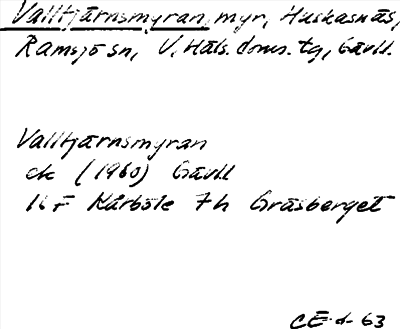 Valltjärnsmyran, myr, Huskasnäs,
Ramsjö sn, V. Häls. doms. tg, Gävll.
Valltjärnsmyran
ek (1960) Gävll
16F Kårböle 7h Gråsberget
CE-d- 63